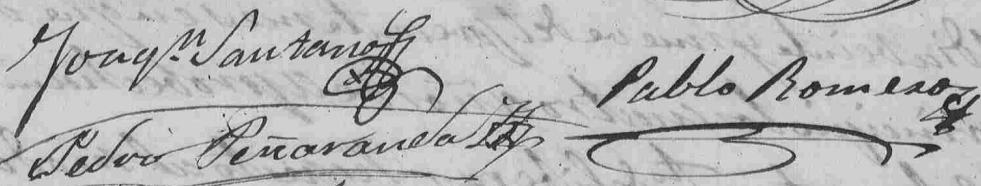 Joaqn. Santano
Pablo Romero
Pedro Peñaranda